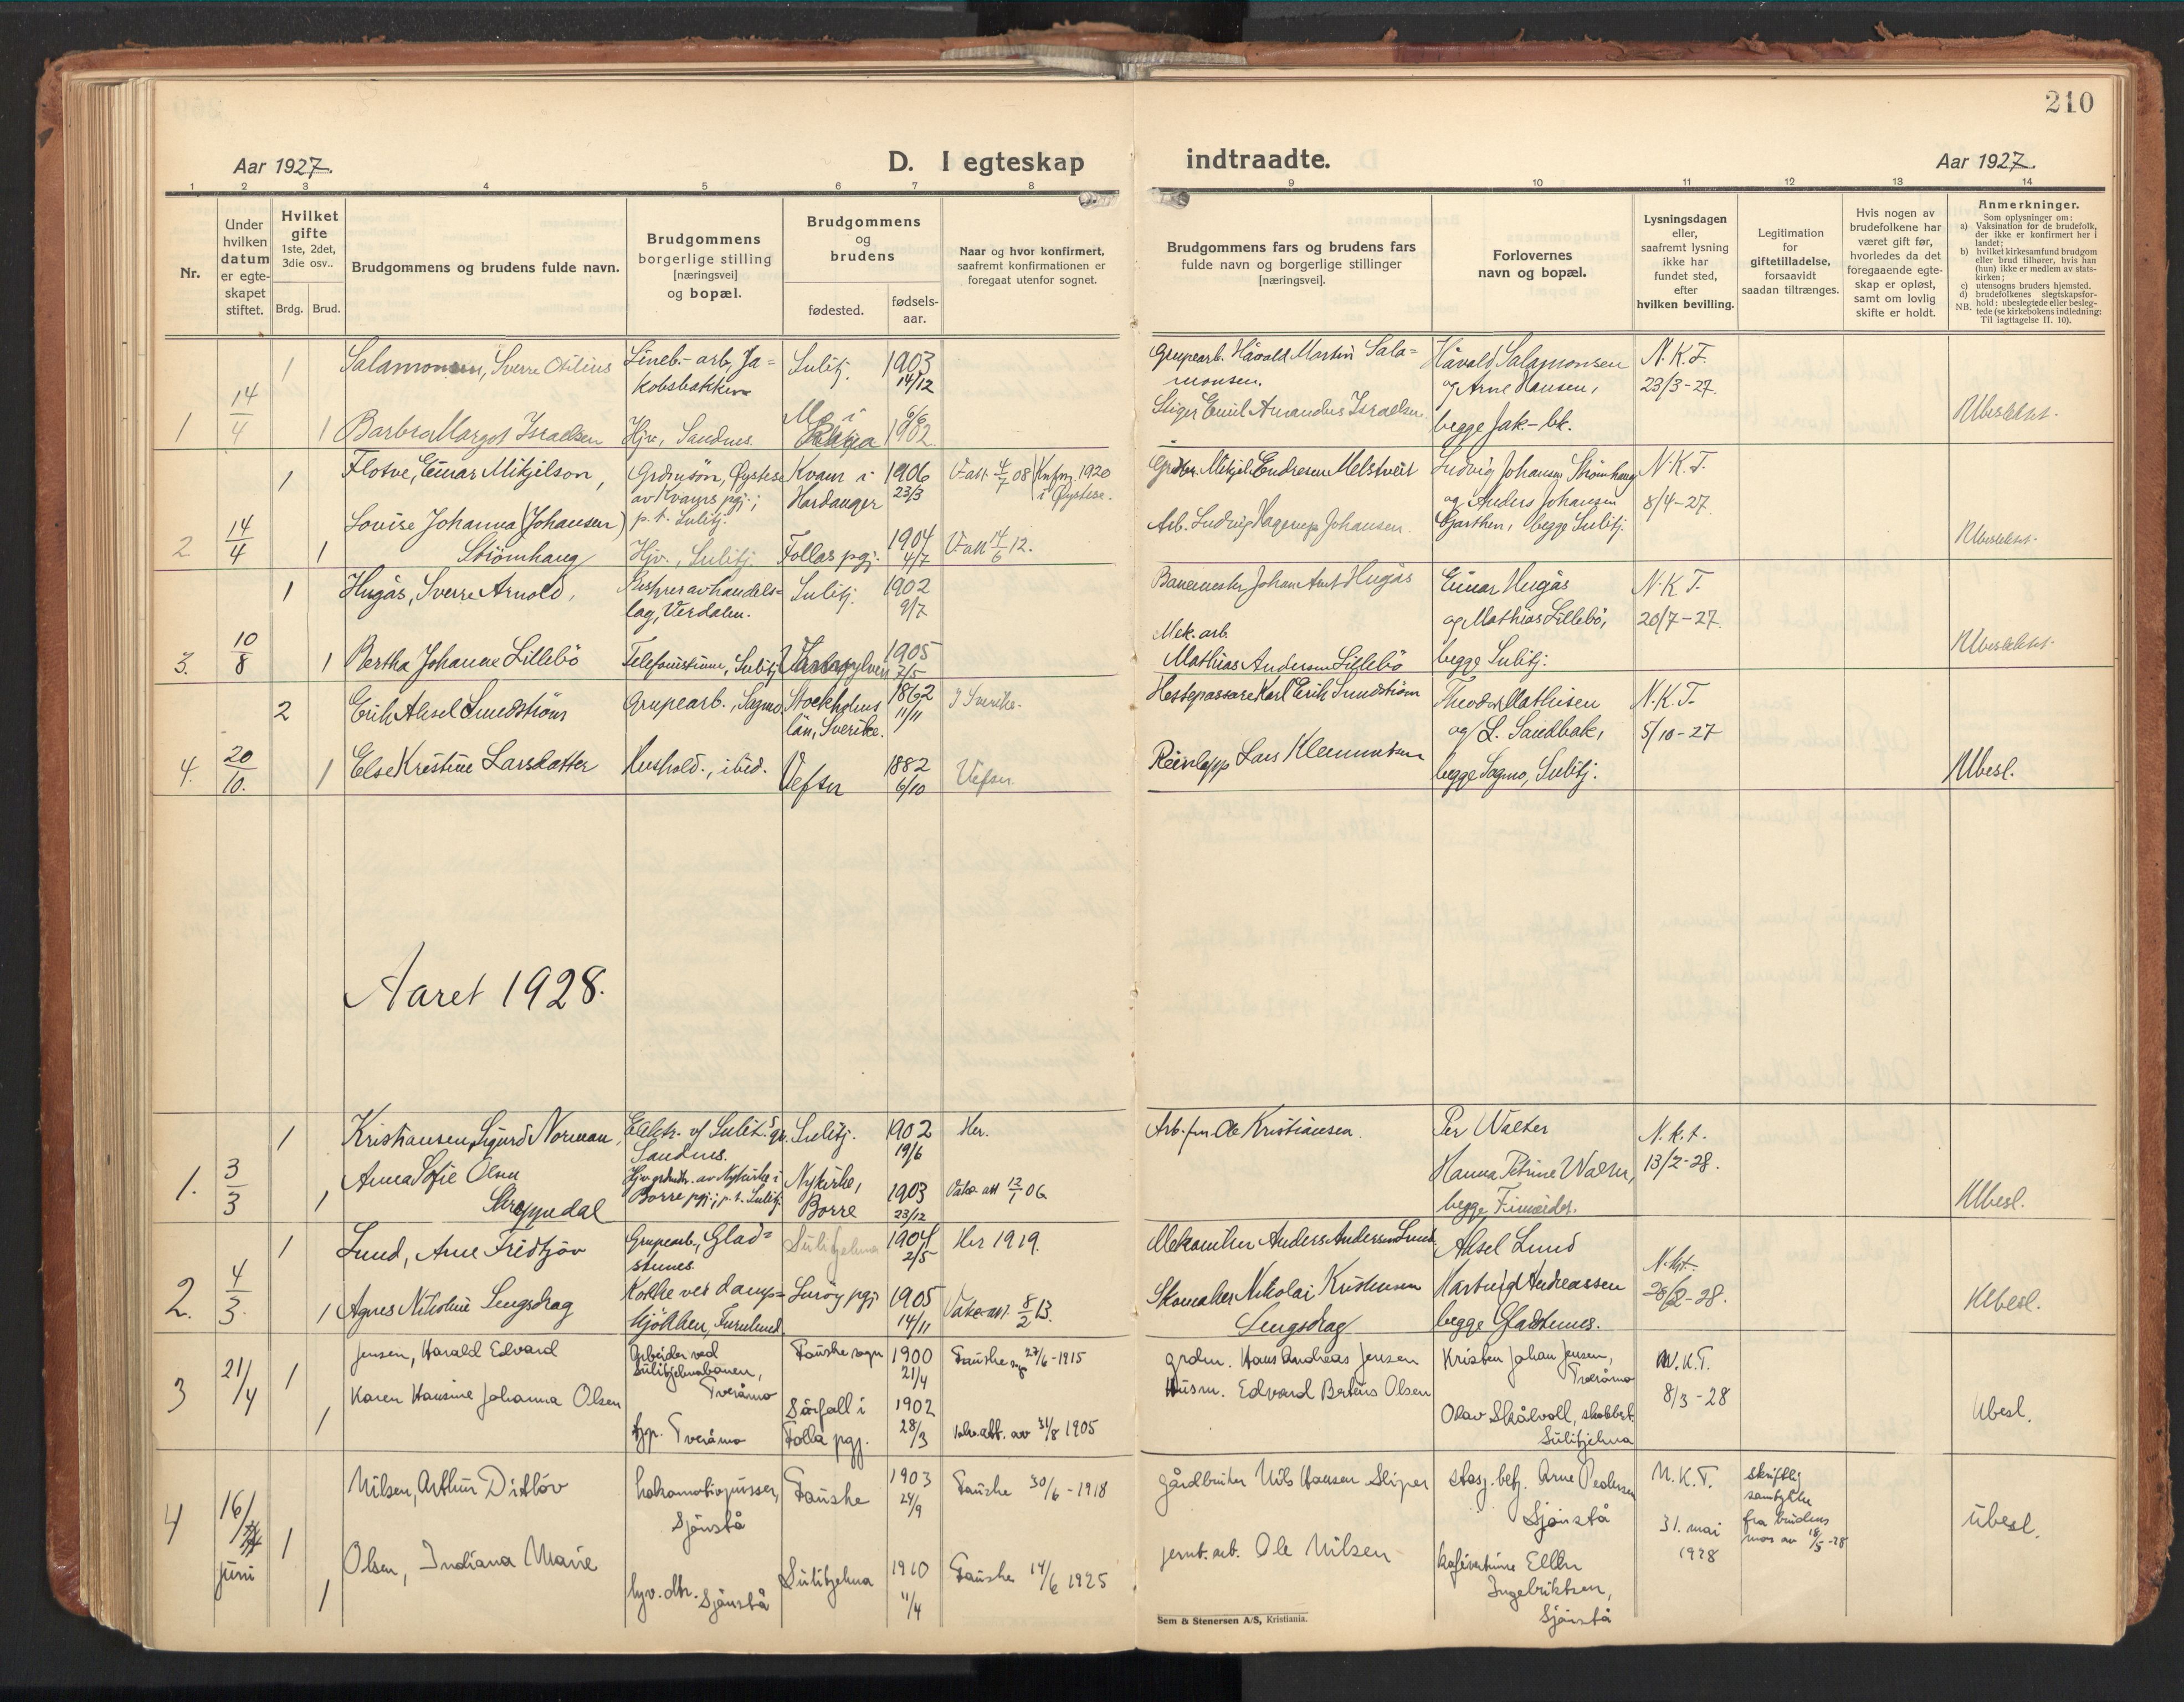 210
Aar 1927.
D. I egteskap
indtraadte.
Aar 1927.
1 2 3 4 5 6 7 8 9 10 11 12 13 14
Nr.
Under hvilken datum er egteskapet stiftet.
Hvilket gifte
1ste, 2det, 3die osv..
Brdg. Brud.
Brudgommens og brudens fulde navn.
Brudgommens borgerlige stilling [næringsvei] og bopæl.
Brudgommens og brudens
fødested.
fødsels-aar.
Naar og hvor konfirmert, saafremt konfirmationen er foregaat utenfor sognet.
Brudgommens fars og brudens fars fulde navn og borgerlige stillinger [næringsvei].
Forlovernes navn og bopæl.
Lysningsdagen eller, saafremt lysning ikke har fundet sted, efter hvilken bevilling.
Legitimation for giftetilladelse, forsaavidt saadan tiltrænges.
Hvis nogen av brudefolkene har været gift før, hvorledes da det foregaaende egte-skap er opløst, samt om lovlig skifte er holdt.
Anmerkninger.
Som oplysninger om:
a) Vaksination for de brudefolk, der ikke er konfirmert her i landet;
b) hvilket kirkesamfund brudgom eller brud tilhører, hvis han (hun) ikke er medlem av stats-kirken;
c) utensogns bruders hjemsted.
d) brudefolkenes slegtskapsfor-hold: ubeslegtede eller besleg-tede (se kirkebokens indledning: Til iagttagelse II. 10).
NB.
1 14/4
1 Salamonsen, Sverre Otilius
Lineb.- arb, Ja=
kobsbakken
Sulitj. 1903 14/12
Grupearb. Håvald Martin Sala=
monsen.
Håvald Salamonsen
og Arne Hansen,
begge Jak-bk.
N.K.T.
23/3-27.
1 Barbra Margot Israelsen
Hjv, Sandnes.
Mo i
6/6 1902
Stiger Emil Amandus Israelsen
Ubeslektet.
2 14/4
1 Flotve, Einar Mikjelson,
Grdmsøn, Øystese
av Kvams pgj.;
p. t. Sulitj.
Kvam i
Hardanger
1906 23/3
Konfrm. 1920
i Øystese.
Grdbr. Mikjel Endresen Melstveit
Ludvig Johansen Strømhaug
og Anders Johansen
Garthen, begge Sulitj.
N.K.T.
8/4-27.
1 Lovise Johanna (Johansen)
Strømhaug
Hjv., Sulitj.
Follas pgj. 1904 4/7
V-att 14/6 12.
Arb. Ludvig Hagerup Johansen.
Ubeslektet.
3. 10/8
1 Hugås, Sverre Arnold,
Bestyrer av handels=
lag, Verdalen.
Sulitj. 1902 9/7
Banemester Johan Arnt Hugås
Einar Hugås
og Mathias Lillebö,
begge Sulitj.
N.K.T.
20/7-27.
1 Bertha Johanne Lillebö
Telefonistinne, Sulitj
1905 7/5
Mek. arb.
Mathias Andersen Lillebö
Ubeslektet.
4. 20/10.
2 Erik Aksel Sundström
Grupearb., Sagmo.
Stockholms
län, Sverike.
11/11
I Sverike.
Hestepassare Karl Erik Sundström
Theodor Mathisen
og L. Sandbak,
begge Sagmo, Sulitj.
N.K.T.
5/10-27
1 Else Kristine Larsdatter
Hushold., ibid.
Vefsn 1882 6/10
Vefsn.
Reinlapp Lars Klemmetsen
Ubesl.
Aaret 1928.
1. 3/3
1 Kristiansen, Sigurd Norman,
Elektr. v/ Sulitj.s gr.
Sandnes.
Sulitj. 1902 19/6
Her.
Arb.frm Ole Kristiansen.
Per Walter
Hanna Petrine Walter,
begge Fineidet.
N.k.t.
13/2-28.
1 Anna Sofie Olsen
Hjv. grdmdtr. av Nykirke i
Borre pgj.; p. t. Sulitj.
Nykirke,
Borre
1903 23/12
Vaks-att 12/1 06
Ubesl.
2. 4/3.
1 Lund, Arne Fridtjov
Grupearb., Glad=
stunes.
Sulitjelma 1904 2/5
Her 1919.
Mekaniker Anders Andersen Lund.
Aksel Lund
Hartvig Andreassen
begge Gladstunes.
N.k.t.
28/2-28.
1 Agnes Nikoline Lengsdrag
Kokke ved damp=
kjökken, Furulund.
Lurøy pgj 1905 14/11
Vaks-att. 8/2 13.
Skomaker Nikolai Kristensen
Lengsdrag
Ubesl.
3 21/4
1 Jensen, Harald Edvard
Arbeider ved
Sulitjelmabanen,
Tveråmo
Fauske sogn 1900 21/4
Fauske sogn 27/6-1915
grdm. Hans Andreas Jensen
Kristen Johan Jensen,
Tveråmo
Olav Skålvoll, skobbest.
Sulitjelma
N.K.T.
8/3-28
1 Karen Hansine Johanna Olsen
tjp. Tveråmo
Sørfall i
Folla pgj.
1902 28/3
Vak.att. av 31/8 1905
Husm. Edvard Berteus Olsen
Ubesl.
4 16/ juni
1 Nilsen, Arthur Ditløv
lokomotivpusser,
Sjønstå
Fauske 1903 24/9
Fauske 30/6-1918
gårdbruker Nils Hansen Sliper
stasj. betj. Arne Pedersen
Sjønstå
N.K.T.
31. mai
1928
skriftlig
samtykke
fra brudens
mor av 18/5-28
1 Olsen, Indiana Marie
hjv. dtr. Sjønstå
Sulitjelma 1910 11/4
Fauske 14/6 1925
jernb. arb. Ole Nilsen
kafévertinne Ellen
Ingebriktsen,
Sjønstå
Ubesl.
Sem & Stenersen A/S, Kristiania.